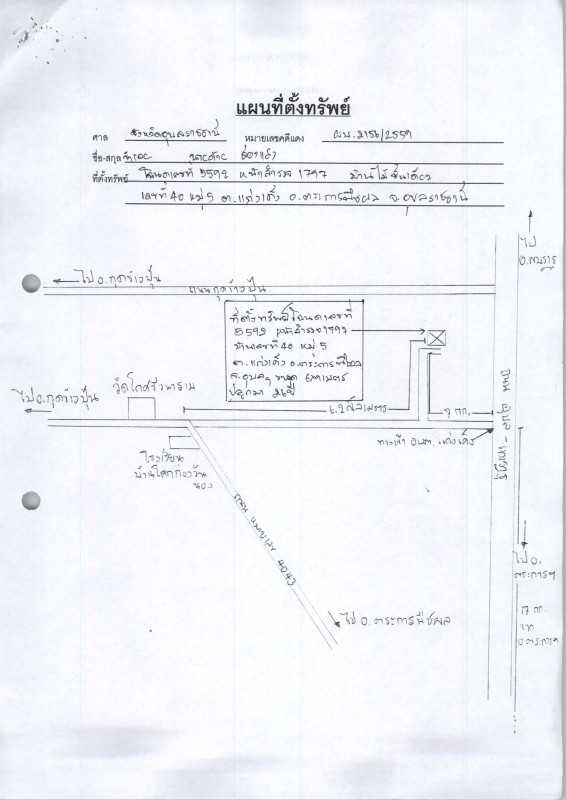 แผนที่ตั้งทรัพย์
ศาล จังหวัดอุบลราชธานี หมายเลขคดีแดง ผบ.2156/2559
ชื่อ-สกุลจำเลย
ที่ตั้งทรัพย์ โฉนดเลขที่ 5592 หน้าสำรวจ 1797 บ้านไม้ชั้นเดียว
เลขที่ 40 หมู่ 5 ต.แก่งเค็ง อ.ตระการพืชผล จ.อุบลราชธานี
ไป
ไป อ.กุดข้าวปุ้น
ถนนกุดข้าวปุ้น
ที่ตั้งทรัพย์โฉนดเลขที่
5592 หน้าสำรวจ 1797
บ้านเลขที่ 40 หมู่ 5
ต.แก่งเค็ง อ.ตระการพืชผล
จ.อุบลฯ
ไป อ.กุดข้าวปุ้น
6.2 กิโลเมตร
7 กก.
ทางเข้า อบต.แก่งเค็ง
โรงเรียน
ถนน หมายเลข 4043
ไป อ.ตระการพืชผล
ไป อ.
ตระการฯ
17 กก.
จาก
อ.ตระการฯ